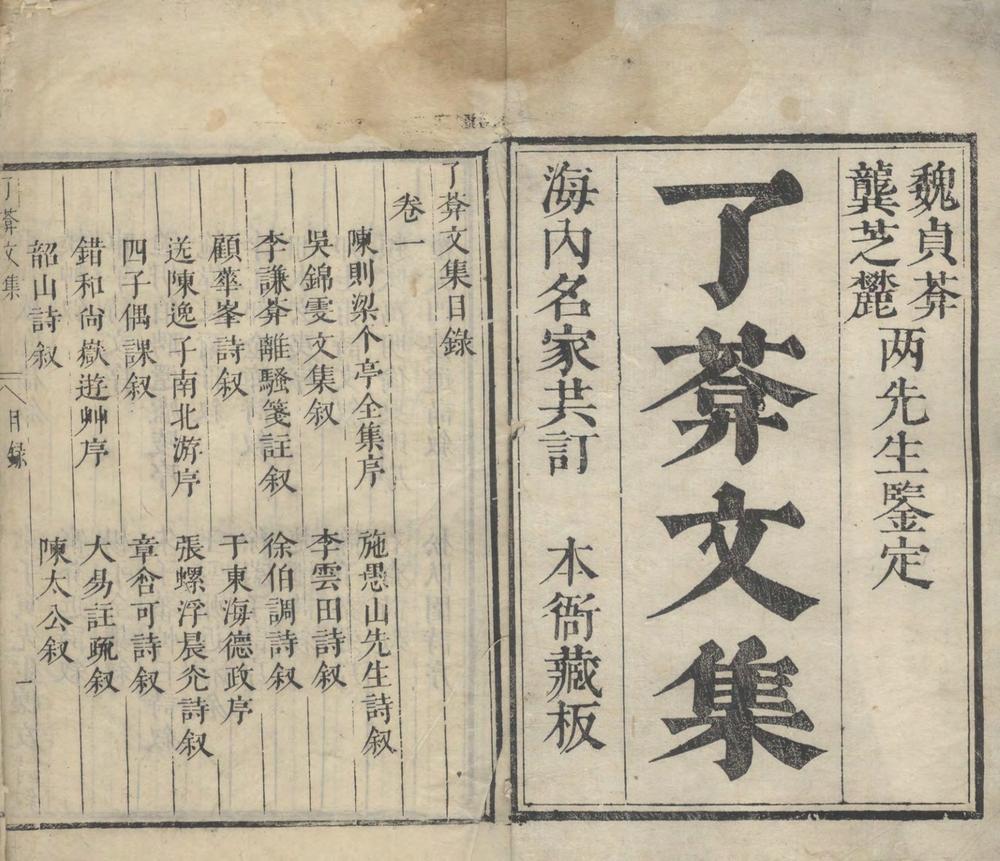 魏貞菴
龔芝麓
两先生鑒定
了菴文集
海內名家共訂 本衙藏板
了菴文集目錄
卷一
陳則梁个亭全集序 施愚山先生詩叙
吳錦雯文集叙 李雲田詩叙
李謙菴離騷箋註叙 徐伯調詩叙
顧華峯詩叙 于東海德政序
送陳逸子南北游序 張螺浮晨光詩叙
四子偶課叙 章含可詩叙
錯和尙嶽遊艸序 大易註疏叙
韶山詩叙 陳太公叙
了菴文集 目錄 一